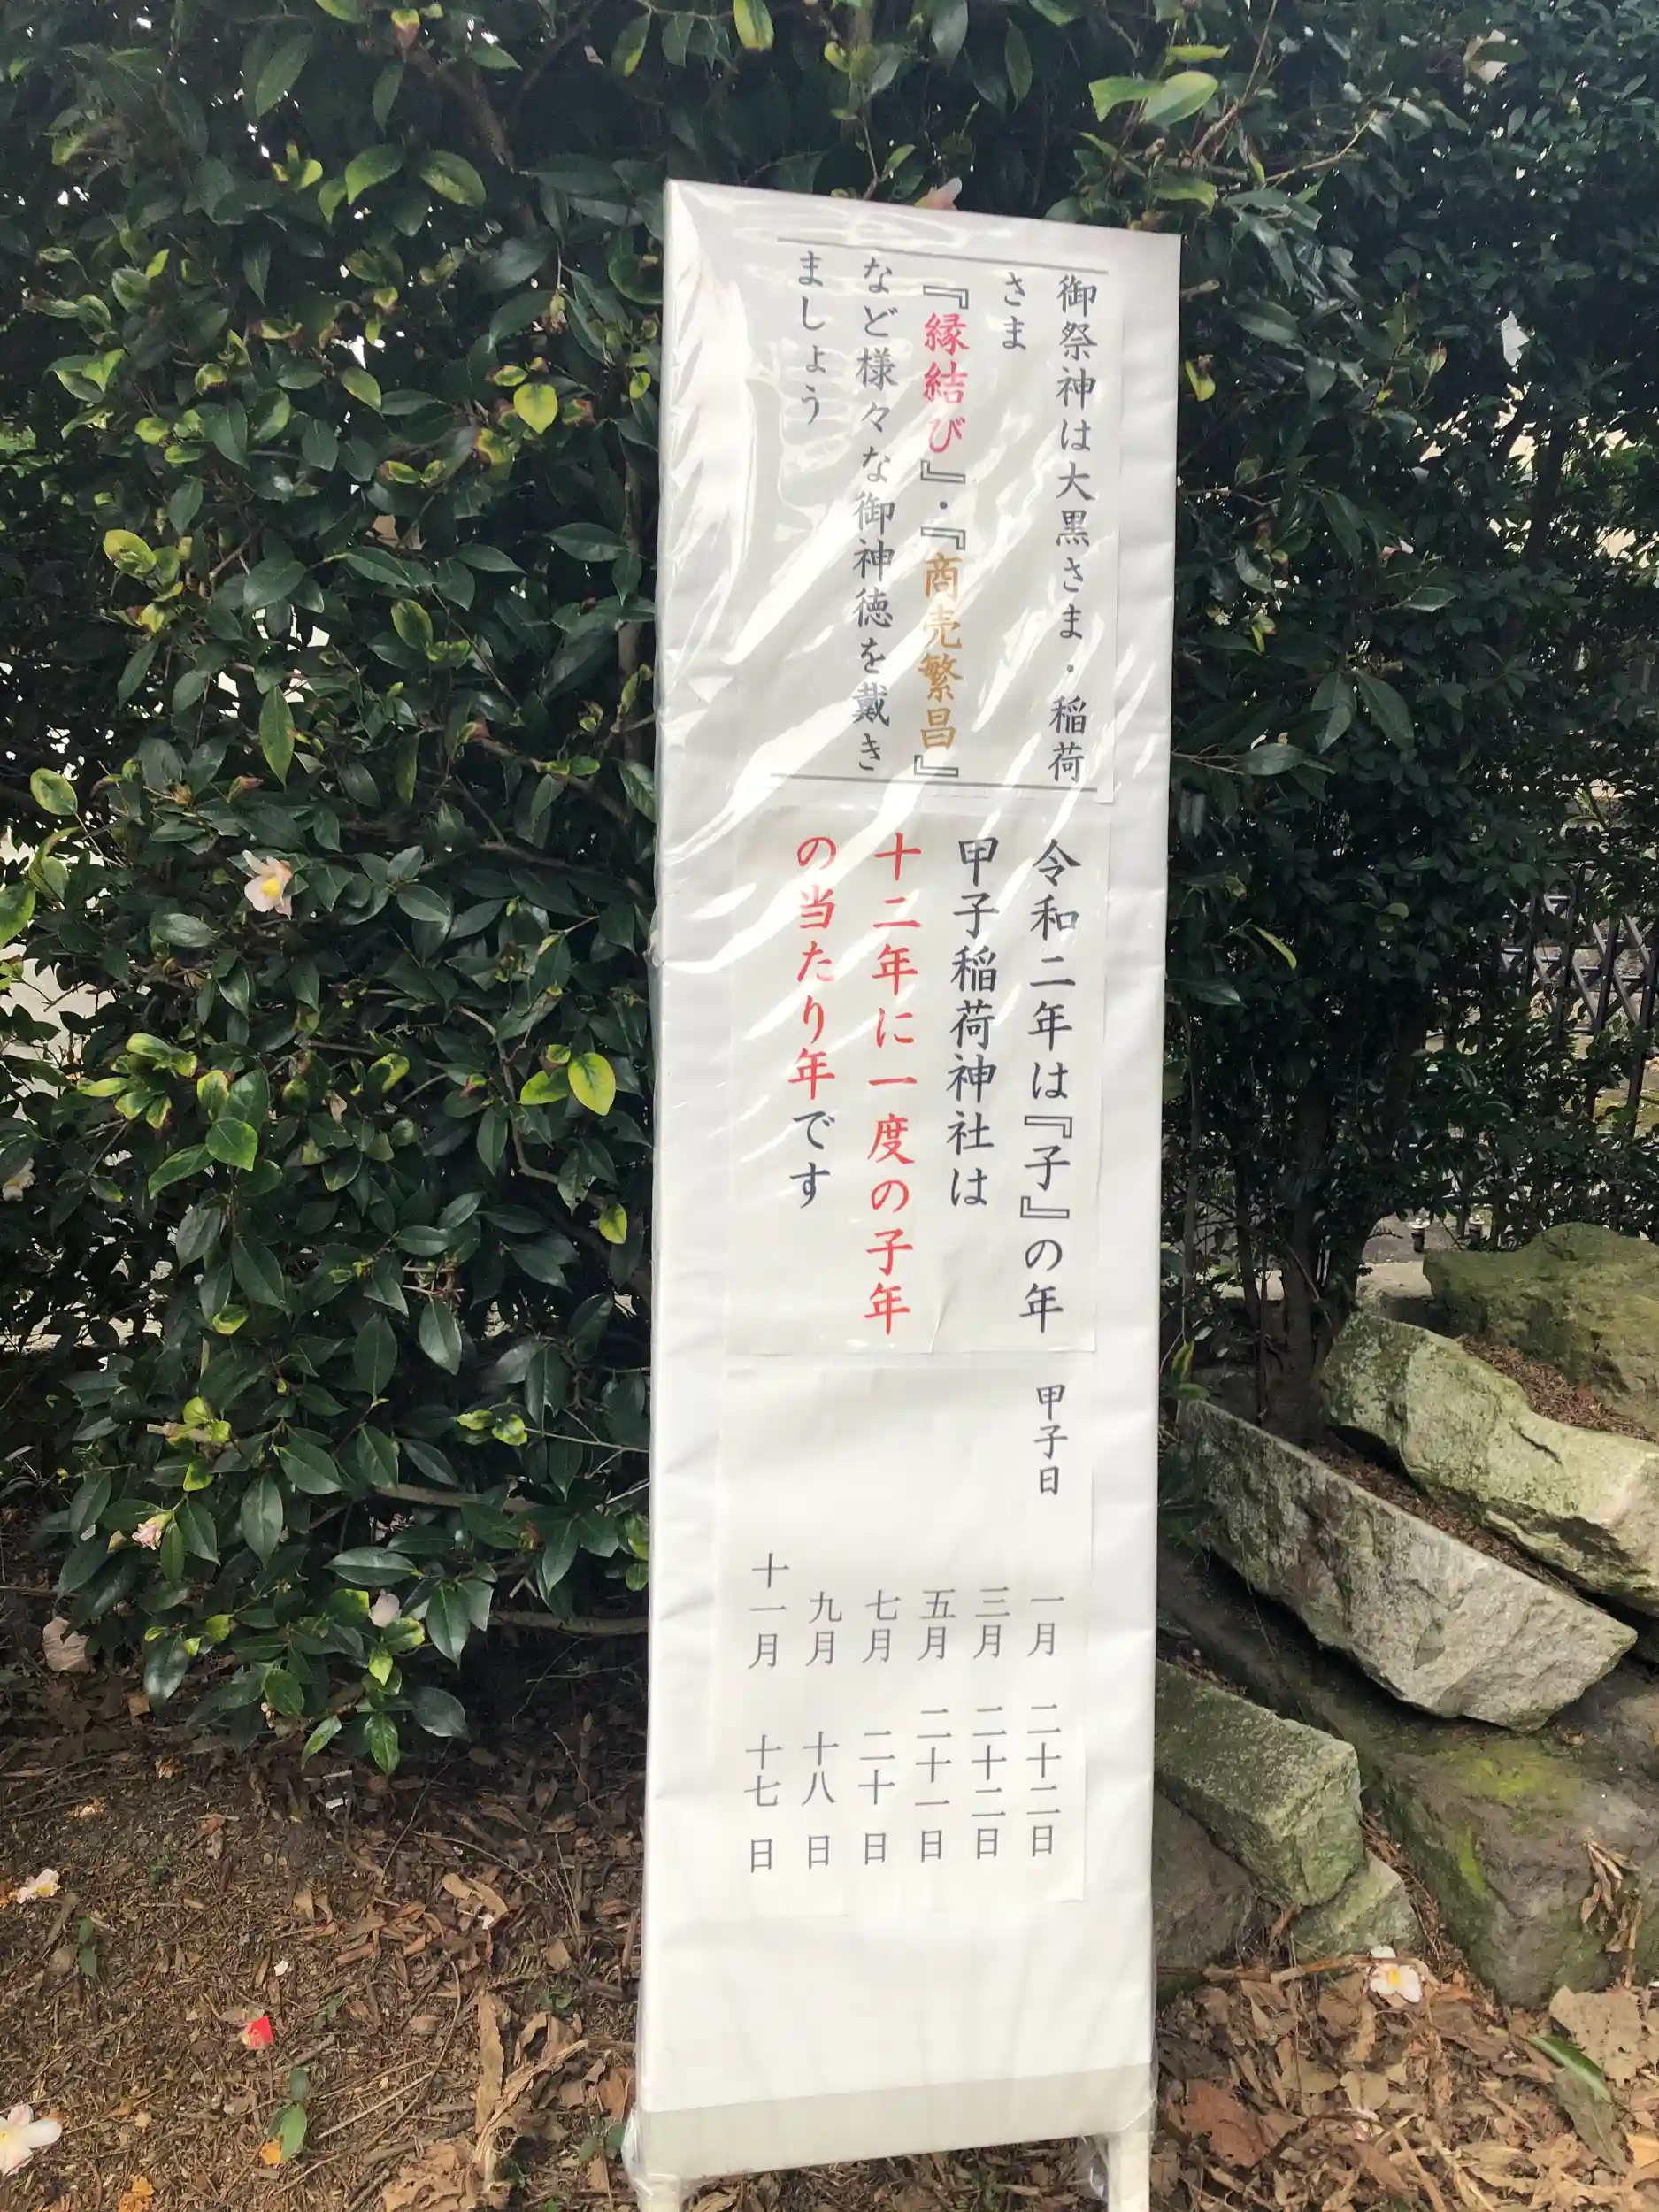 御祭神は大黒さま・稲荷
さま
『縁結び』・『商売繁昌』
など様々な御神徳を戴き
ましょう
令和二年は『子』の年
甲子稲荷神社は
十二年に一度の子年
の当たり年です
甲子日
一月 二十二日
三月 二十二日
五月 二十一日
七月 二十日
九月 十八日
十一月 十七日